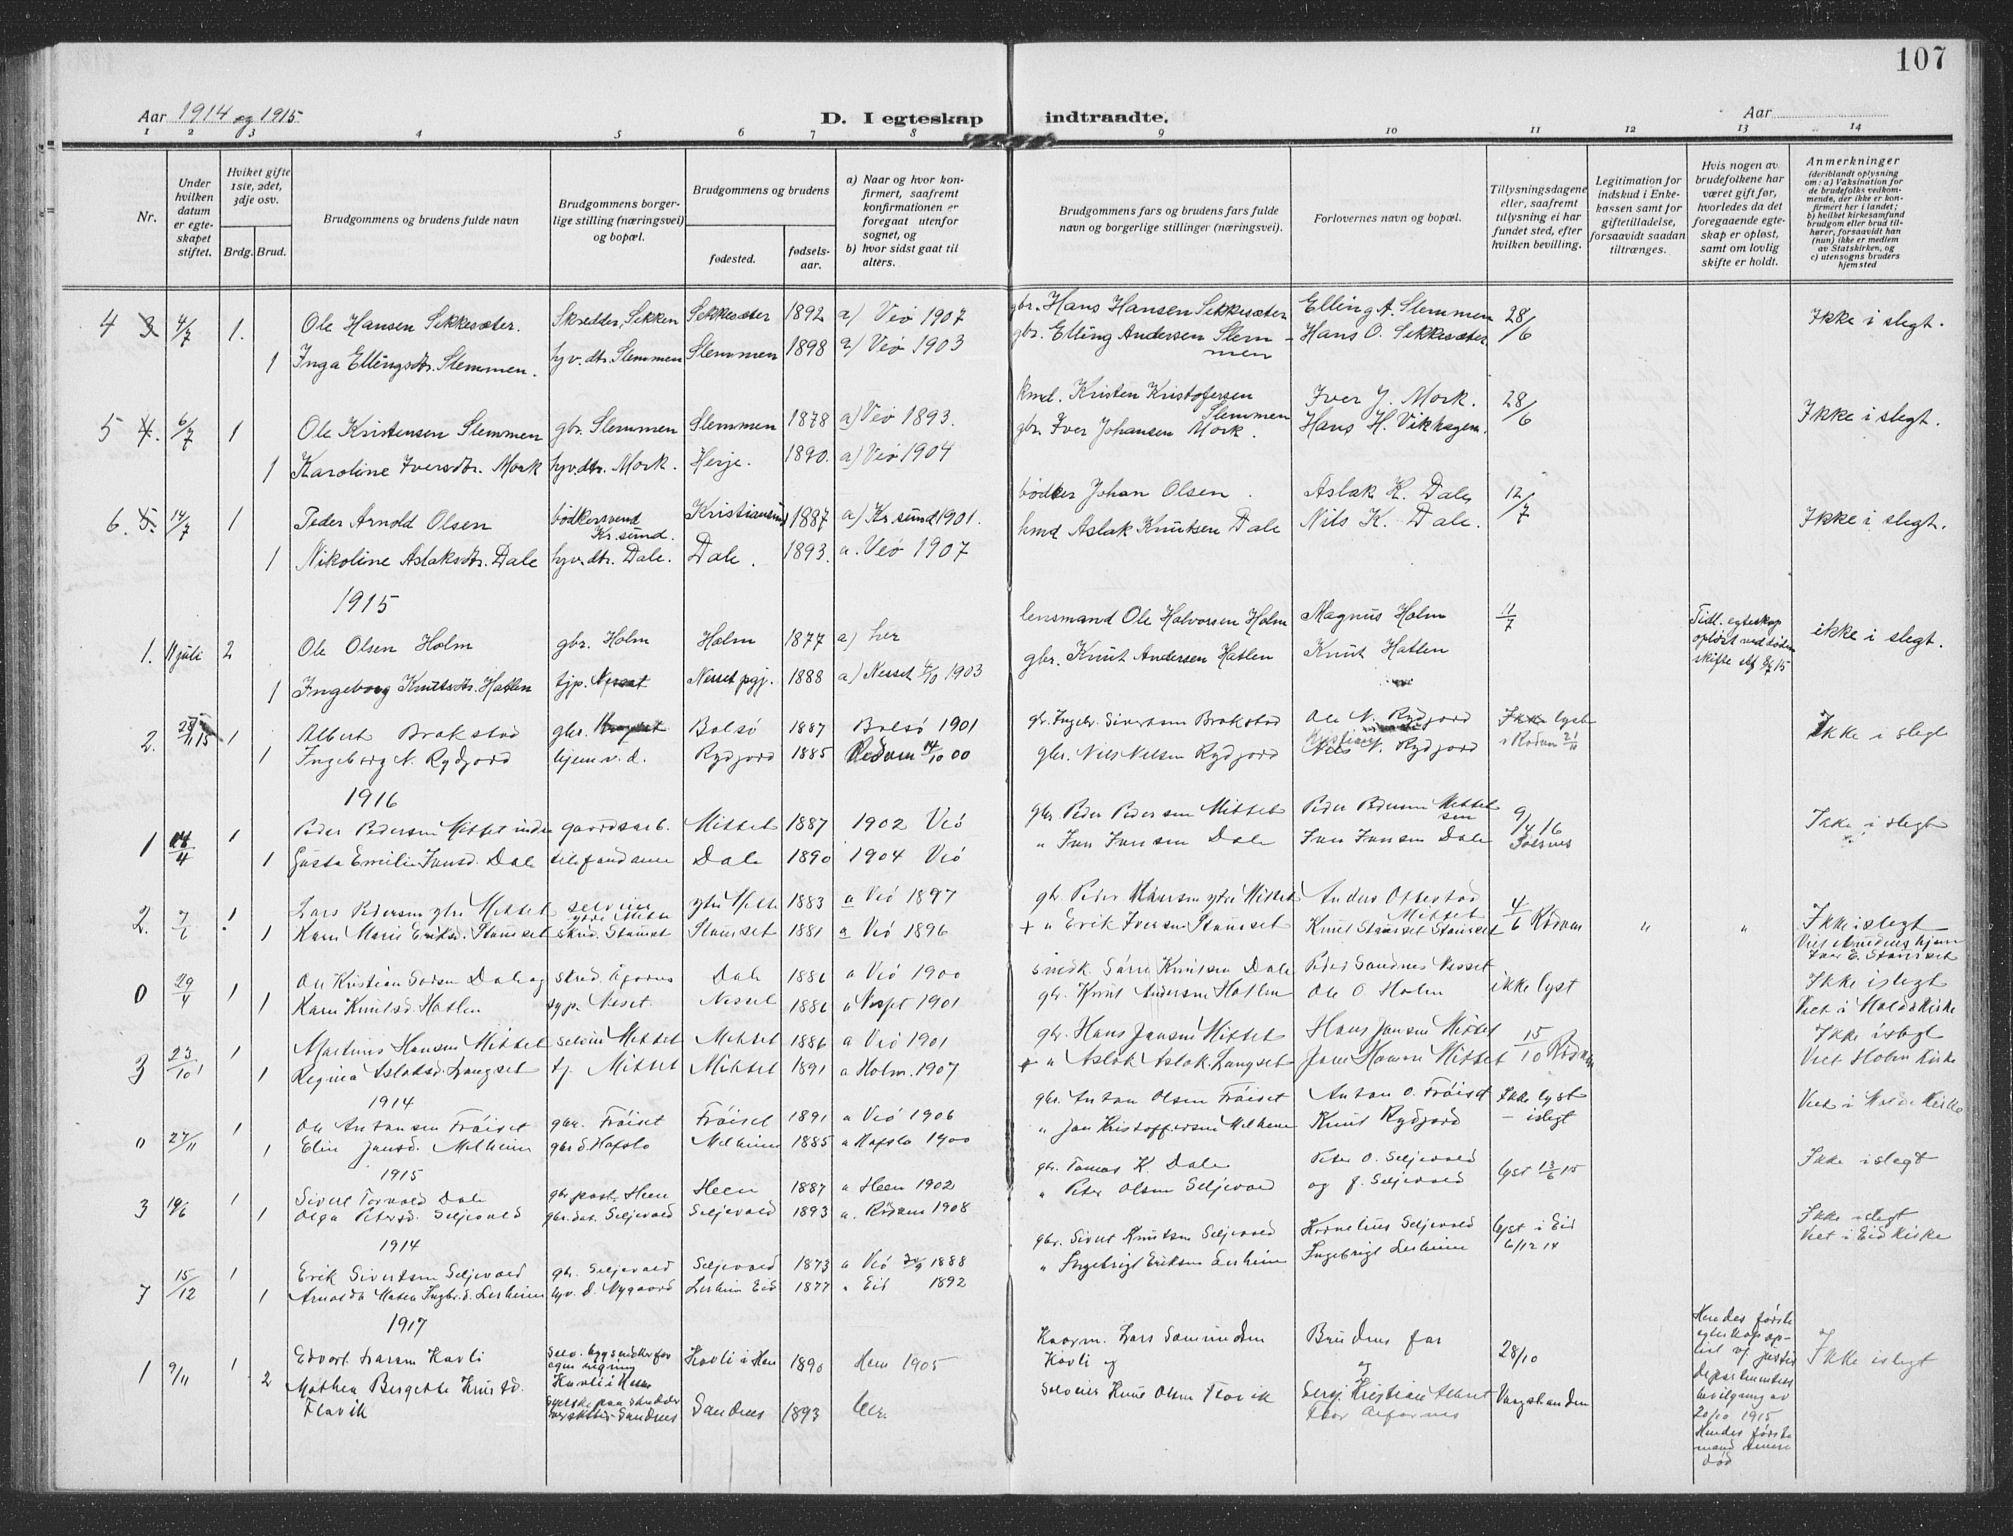 107
Aar 1914 og 1915
D. I egteskap indtraadte.
Aar
1 2 3 4 5 6 7 8 9 10 11 12 13 14
Nr.
Under hvilken datum er egteskapet stiftet.
Hvilket gifte 1ste, 2det, 3dje osv.
Brdg. Brud.
Brudgommens og brudens fulde navn
Brudgommens borgerlige stilling (næringsvei) og bopæl.
Brudgommens og brudens
fødested.
fødselsaar.
a) Naar og hvor konfirmert, saafremt konfirmationen er foregaat utenfor sognet, og
b) hvor sidst gaat til alters.
Brudgommens fars og brudens fars fulde navn og borgerlige stillinger (næringsvei).
Forlovernes navn og bopæl.
Tillysningsdagene eller, saafremt tillysning ei har fundet sted, efter hvilken bevilling.
Legitimation for indskud i Enkekassen samt for giftetilladelse, forsaavidt saadan tiltrænges.
Hvis nogen av brudefolkene har været gift før, hvorledes da det foregaaende egteskap er opløst, samt om lovlig skifte er holdt.
Anmerkninger
(deriblandt oplysning om: a) Vaksination for de brudefolks vedkommende, der ikke er konfirmert her i landet; b) hvilket kirkesamfund brudgom eller brud tilhører, forsaavidt han (hun) ikke er medlem av Statskirken, og c) utensogns bruders hjemsted
4 3 4/7 1. Ole Hansen Sekkesæter. Skredder, Sekken Sekkesæter 1892 a) Veø 1907 gbr. Hans Hansen Sekkesæter Elling A. Slemmen 28/6 Ikke i slegt.
1 Inga Ellingsdtr. Slemmen. hjv. dtr. Slemmen Slemmen 1898 a) Veø 1903 gbr. Elling Andersen Slemmen Hans O. Sekkesæter.
5 4. 6/7 1 Ole Kristensen Slemmen gbr. Slemmen Slemmen 1878 a) Veø 1893. kmd. Kristen Kristofersen Slemmen Iver J. Mork. 28/6 Ikke i slegt.
1 Karoline Iversdtr. Mork hjv. dtr. Mork. Herje. 1890. a) Veø 1904 gbr. Iver Johansen Mork. Hans H. Vikhagen.
6. 5. 14/7 1 Peder Arnold Olsen bødkersvend Kr.sund. Kristiansund 1887 a) Kr.sund 1901. bødker Johan Olsen. Aslak K. Dale 12/7 Ikke i slegt.
1 Nikoline Aslaksdtr. Dale hjv. dtr. Dale. Dale. 1893. a. Veø 1907 kmd Aslak Knutsen Dale Nils K. Dale.
1915
1. 11 juli 2 Ole Olsen Holm gbr. Holm Holm 1877 a) her lensmand Ole Halvorsen Holm Magnus Holm 11/7 Tidl. egteskap opløst ved døden ikke i slegt.
1 Ingeborg Knutsdtr. Hatlen tjp. Nesset Nesset pgj. 1888 a) Nesset 4/10 1903 gbr. Knut Andersen Hatlen Knut Hatlen
2. 1 Albert Brakstad gbr. Bolsø 1887 Bolsø 1901 gbr. Ingebr. Sivertsen Brakstad Ole N. Rydjord Ikke lyst Ikke i slegt
1 Ingeborg N. Rydjord hjem v. d. Rydjord 1885 Rødven 14/10 00 gbr. Nils Nilsen Rydjord Nils N. Rydjord i Rødven
1916
1 1 Peder Pedersen Mittet indre gaardsarb. Mittet 1887 1902 Veø gbr Peder Pedersen Mittet Peder Pedersen Mittet 9/4 16 Ikke i slegt
1 Gusta Emilie Ivarsd. Dale telefondame Dale 1890 1904 Veø " Ivar Iversen Dale Ivar Iversen Dale
2. 7/6 1 Lars Pedersen ytre Mittet ytre Mittet 1883 a Veø 1897 gbr Peder Hansen ytre Mittet Anders Mittet 4/6 Rødven " " Ikke i slegt
1 Karen Marie Eriksd. Stamset Stamset 1881 a Veø 1896 + " Erik Iversen Stamset Knut Stamset Stamset Viet i
0 29/4 1 Ole Kristian Dale Dale 1886 a Veø 1900 Knutsen Dale Peder Sandnes Nesset ikke lyst Ikke i slegt
1 Karen Knutsd. Hatlen Nesset. Nesset 1886 a Nesset 1901 gbr. Knut Andersen Hatlen Ole O. Holm Viet i Molde Kirke
3 23/10 1 Martinus Hansen Mittet Mittet Mittet 1886 a Veø 1901 gbr. Hans Jansen Mittet Hans Jansen Mittet 15/10 Rødven Ikke i slegt
1 Regina Aslaksd. Langset tj. Mittet Mittet 1891 a Holm. 1907 + " Aslak Aslaks. Langset Jens Hansen Mittet Viet Holm Kirke
1914
" 27/11 1 Ole Antonsen Frøiset gbr. Frøiset Frøiset 1891 a Veø 1906 gbr. Anton Olsen Frøiset Anton O. Frøiset Ikke lyst Viet i Molde Kirke
1 Elin Jansd. Melheim gbrd. Hafslo Melheim 1885 a Hafslo 1900 " Jan Kristoffersen Melheim Knut Rydjord - i slegt
1915
3 19/6 1 Sivert Torvald Dale Heen Heen 1887 a Heen 1902 gbr. Tomas K. Dale Peter O. Seljevold lyst 13/6 15 Ikke i slegt
1 Olga Petersd. Seljevold gbr. dat. Seljevold Seljevold 1893 a. Rødven 1908 " Peter Olsen Seljevold og J. Seljevold
1914
7 15/12 1 Erik Sivertsen Seljevold gbr. Seljevold Seljevold 1873 a Veø 1888 gbr. Sivert Knutsen Seljevold Kornelius Seljevold lyst i Eid 6/12 14 Ikke i slegt
1 Arnolda Matea Ingbr.d. Lerheim hjv. d. Nygaard Lerheim Eid 1877 " Eid 1892 " Ingebrigt Eriksen Lerheim Ingebrigt Lerheim Viet i Eid Kirke
1917
1 9/11 1 Edvart Larsen Kavli Kavli i Hen Kavli i Hen 1890 Hen 1905 Lars Samundsen Kavli og Brudens far og 28/10 Ikke i slegt
2 Mathea Bergette Knutsd. Flovik Sandnes Sandnes 1893 her Knut Olsen Flovik Kristian Vaagstranden
Hendes første egteskap opløst v/ justis Departementets bevilgning av 20/10 1915
Hendes første mand senere død